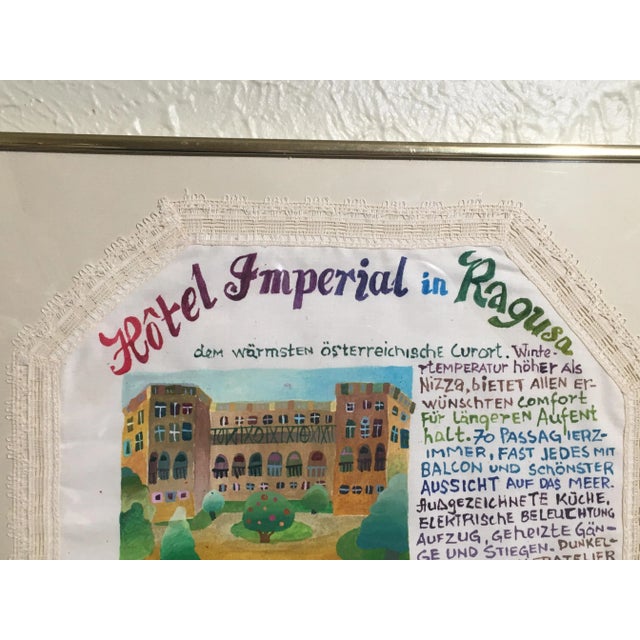 Hôtel Imperial in Ragusa
dem wärmsten österreichische Curort. Winte-
rtemperatur höher als
Nizza, bietet allen er-
wünschten Comfort
für längeren Aufent
halt. 70 Passagierz-
immer, fast jedes mit
Balcon und schönster
Aussicht auf das Meer.
Ausgezeichnete Küche,
elektrische Beleuchtung
Aufzug, geheizte Gän-
ge und Stiegen. Dunkel-